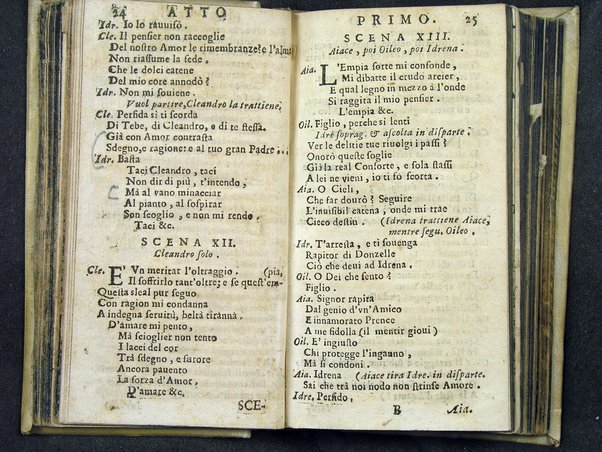 24 ATTO
Idr. Io lo rauuiso.
Cle. Il pensier non raccoglie
Del nostro Amor le rimembranze? e l'alma
Non riassume la fede.
Che le dolci catene
Del mio core annodò?
Idr. Non mi souiene.
Vuol partire, Cleandro la trattiene.
Cle. Perfida si ti scorda
Di Tebe, di Cleandro, e di te stessa.
Già con Amor contrasta
Sdegno, e ragione: e al tuo gran Padre...
Idr. Basta
Taci Cleandro, taci
Non dir di più, t'intendo,
Mà al vano minacciar
Al pianto, al sospirar
Son scoglio, e non mi rendo.
Taci &c.
SCENA XII.
Cleandro solo.
Cle. E' Vn meritar l'oltraggio. (pia,
Il soffrirlo tant'oltre; e se quest'em-
Questa sleal pur seguo
Con ragion mi condanna
A indegna seruitù, beltà tiranna.
D'amare mi pento,
Mà scioglier non tento
I lacci del cor
Trà sdegno, e furore
Ancora pauento
La forza d'Amor,
D'amare &c.
SCE-
PRIMO. 25
SCENA XIII.
Aiace, poi Oileo, poi Idrena.
Aia. L'Empia sorte mi confonde,
Mi dibatte il crudo arcier,
E qual legno in mezzo à l'onde
Si raggira il mio pensier.
L'empia &c.
Oil. Figlio, perche si lenti
Idre soprag. & ascolta in disparte.
Ver le delitie tue riuolgi i passi?
Onorò queste soglie
Già la real Consorte, e sola stassi
A lei ne vieni, io ti fo scorta.
Aia. O Cieli,
Che far dourò? Seguire
L'inuisibil catena, onde mi trae
Cieco destin. (Idrena trattiene Aiace,
mentre segu. Oileo.
Idr. T'arresta, e ti souenga
Rapitor di Donzelle
Ciò che deui ad Idrena.
Oil. O Dei che sento?
Figlio.
Aia. Signor rapita
Dal genio d'vn'Amico
E innamorato Prence
A me fidolla (il mentir gioui)
Oil. E' ingiusto
Chi protegge l'inganno,
Mà si condoni.
Aia. Idrena (Aiace tira Idre. in disparte.
Sai che trà noi nodo non strinse Amore.
Idre. Perfido,
B Aia.